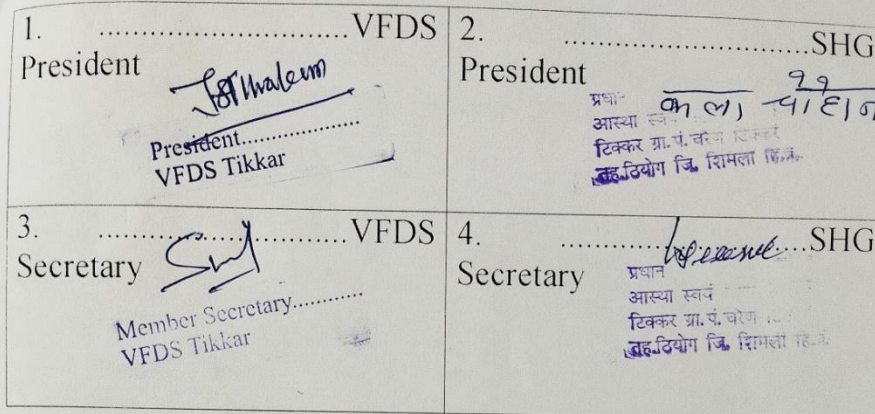 1. ..............................VFDS
President
President....................
VFDS Tikkar
2. ..............................SHG
President
कला चौहान
प्रधान
आस्था स्वयं
टिक्कर ग्रा. पं. चरेण टिक्कर
तह. ठियोग जि. शिमला हि.प्र.
3. ..............................VFDS
Secretary
Member Secretary............
VFDS Tikkar
4. ..............................SHG
Secretary
प्रधान
आस्था स्वयं
टिक्कर ग्रा. पं. चरेण
तह. ठियोग जि. शिमला हि.प्र.